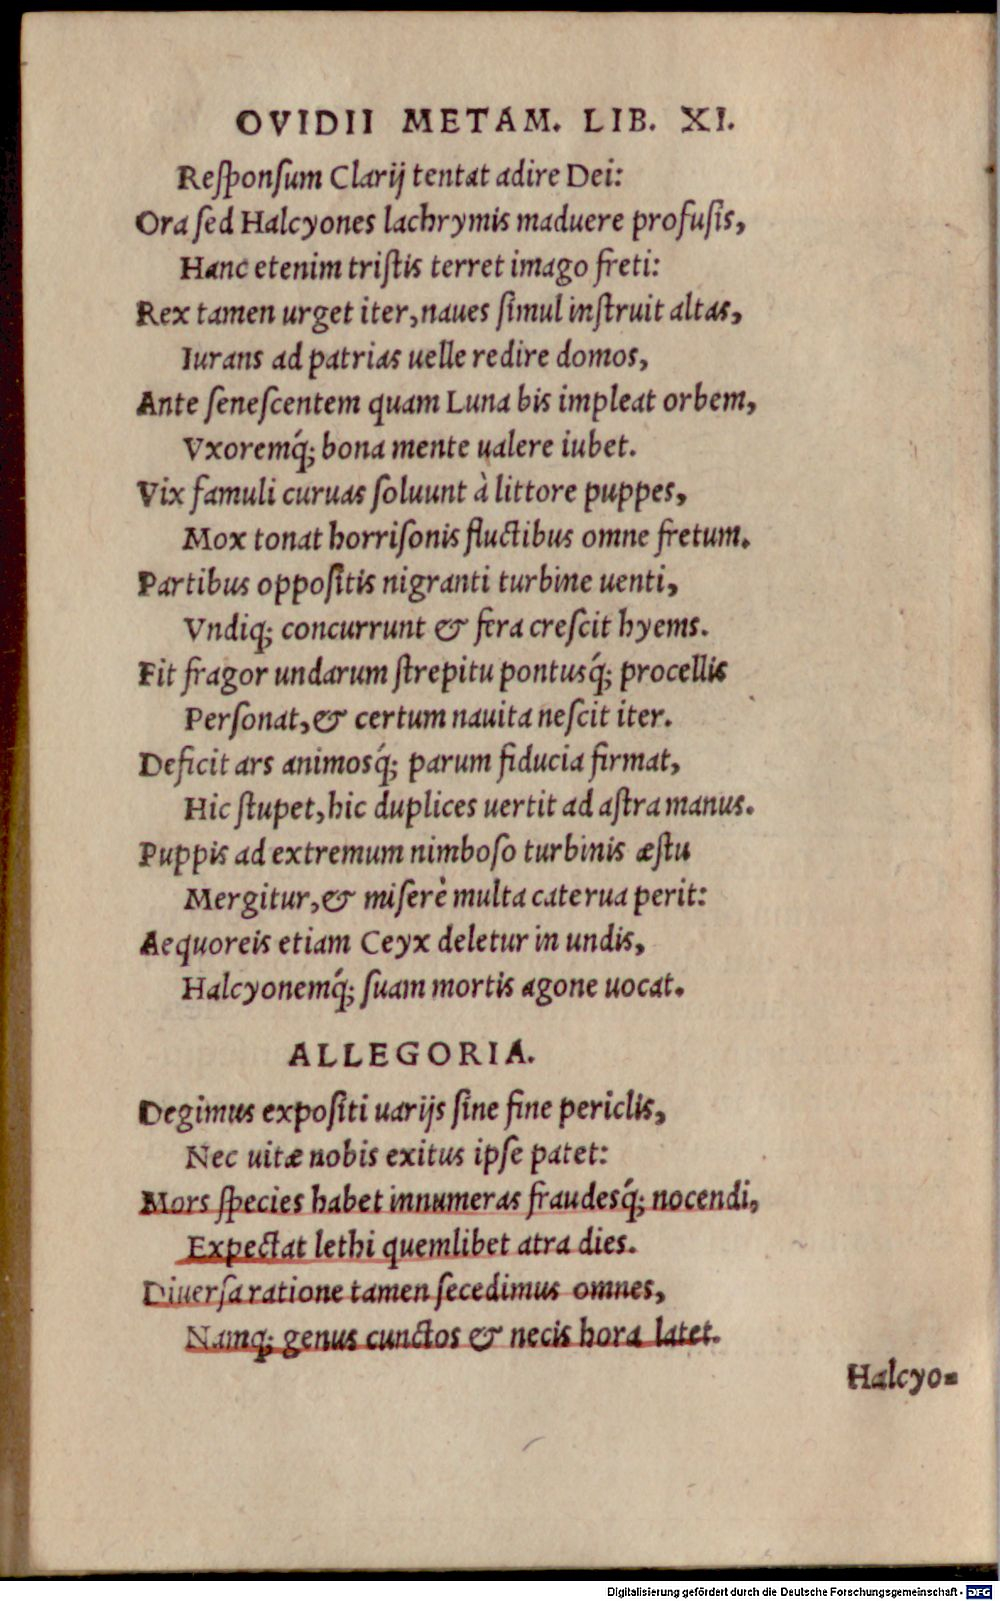 OVIDII METAM. LIB. XI.
Reſponſum Clarij tentat adire Dei:
Ora ſed Halcyones lachrymis maduere profuſis,
Hanc etenim triſtis terret imago freti:
Rex tamen urget iter, naues ſimul inſtruit altas,
Iurans ad patrias uelle redire domos,
Ante ſeneſcentem quam Luna bis impleat orbem,
Vxoremq́; bona mente ualere iubet.
Vix famuli curuas ſoluunt à littore puppes,
Mox tonat horriſonis fluctibus omne fretum.
Partibus oppoſitis nigranti turbine uenti,
Vndiq; concurrunt & fera creſcit hyems.
Fit fragor undarum ſtrepitu pontusq́; procellis
Perſonat, & certum nauita neſcit iter.
Deficit ars animosq́; parum fiducia firmat,
Hic ſtupet, hic duplices uertit ad aſtra manus.
Puppis ad extremum nimboſo turbinis æſtu
Mergitur, & miſerè multa caterua perit:
Aequoreis etiam Ceyx deletur in undis,
Halcyonemq́; ſuam mortis agone uocat.
ALLEGORIA.
Degimus expoſiti uarijs ſine fine periclis,
Nec uitæ nobis exitus ipſe patet:
Mors ſpecies habet innumeras fraudesq́; nocendi,
Expectat lethi quemlibet atra dies.
Diuerſa ratione tamen ſecedimus omnes,
Namq; genus cunctos & necis hora latet.
Halcyo=
Digitalisierung gefördert durch die Deutsche Forschungsgemeinschaft - DFG